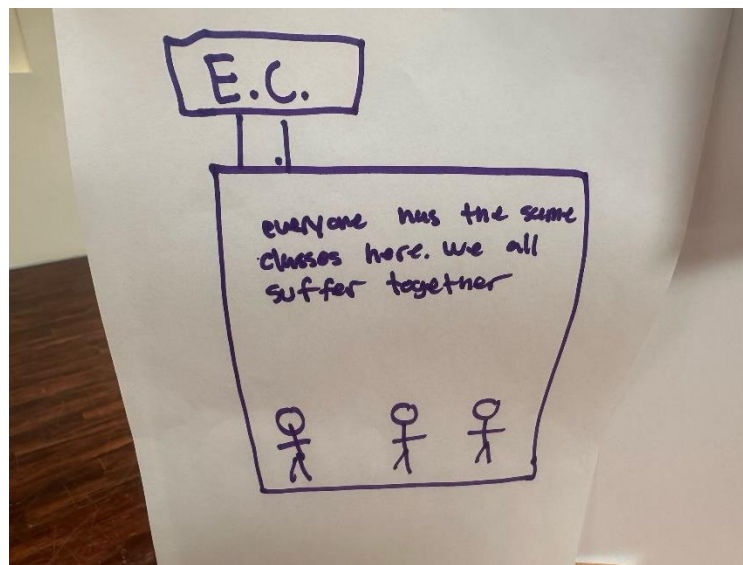 E.C.
everyone has the same
classes here. we all
suffer together